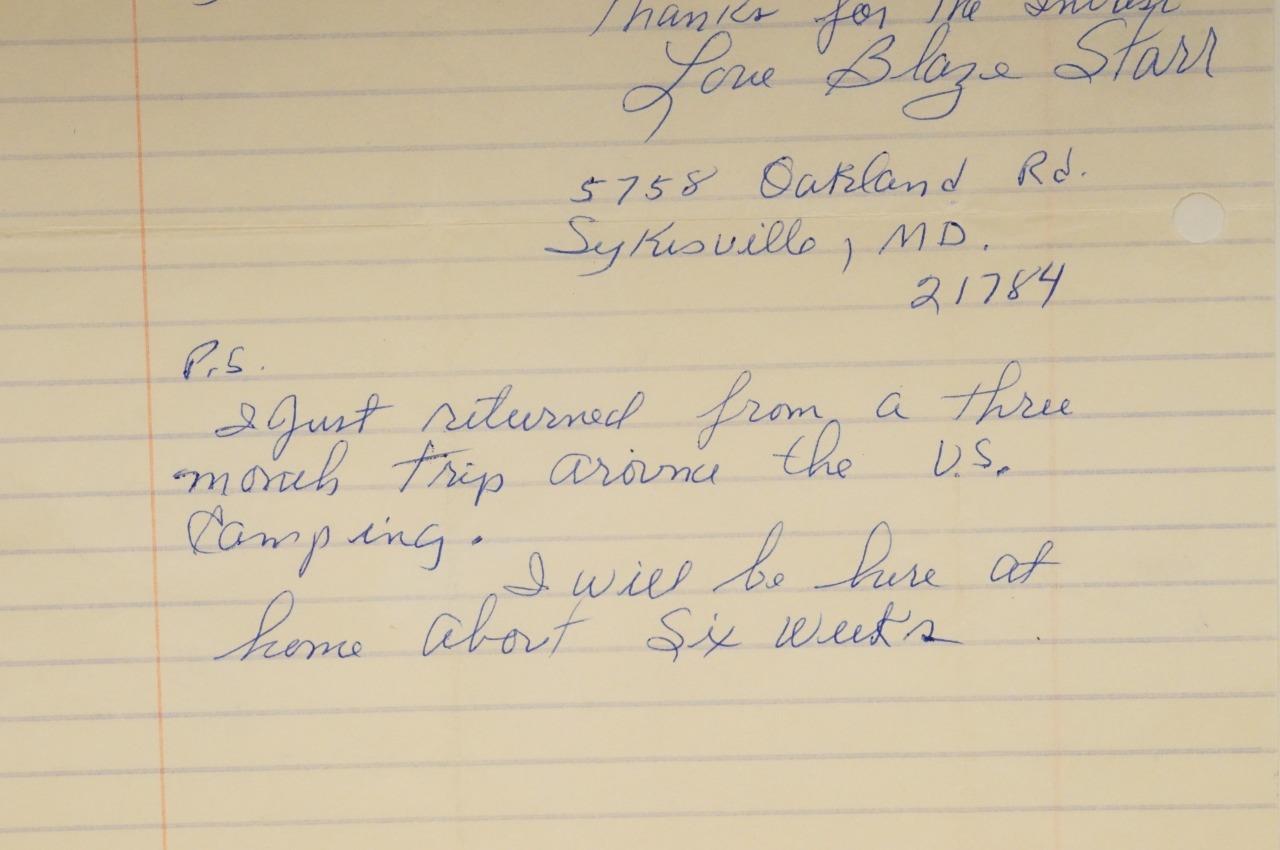 Thanks for the Interest
Love Blaze Starr
5758 Oakland Rd.
Sykesville, MD.
21784
P.S.
I Just returned from a three
month trip around the U.S.
Camping.
I will be here at
home about Six weeks